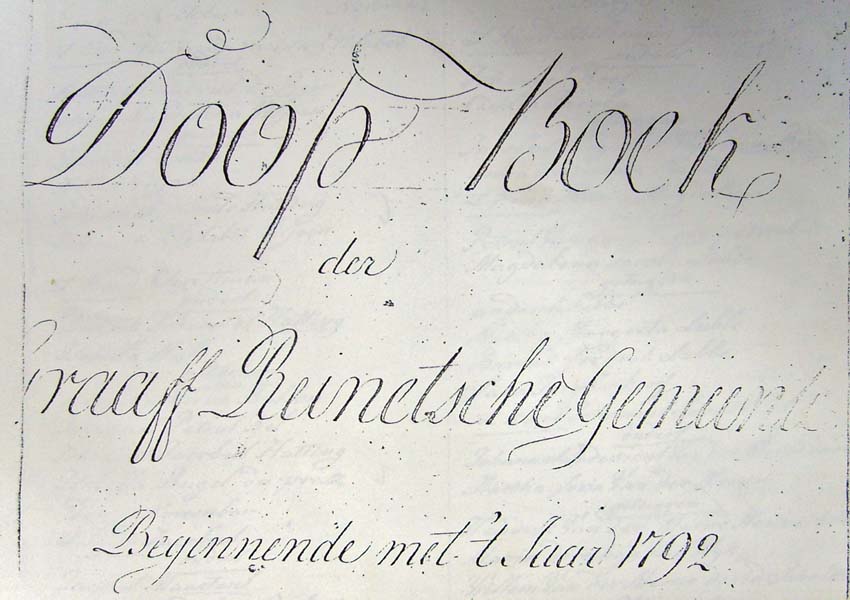 Doop Boek
der
Graaff Reinetsche Gemeente
Beginnende met 't Jaar 1792